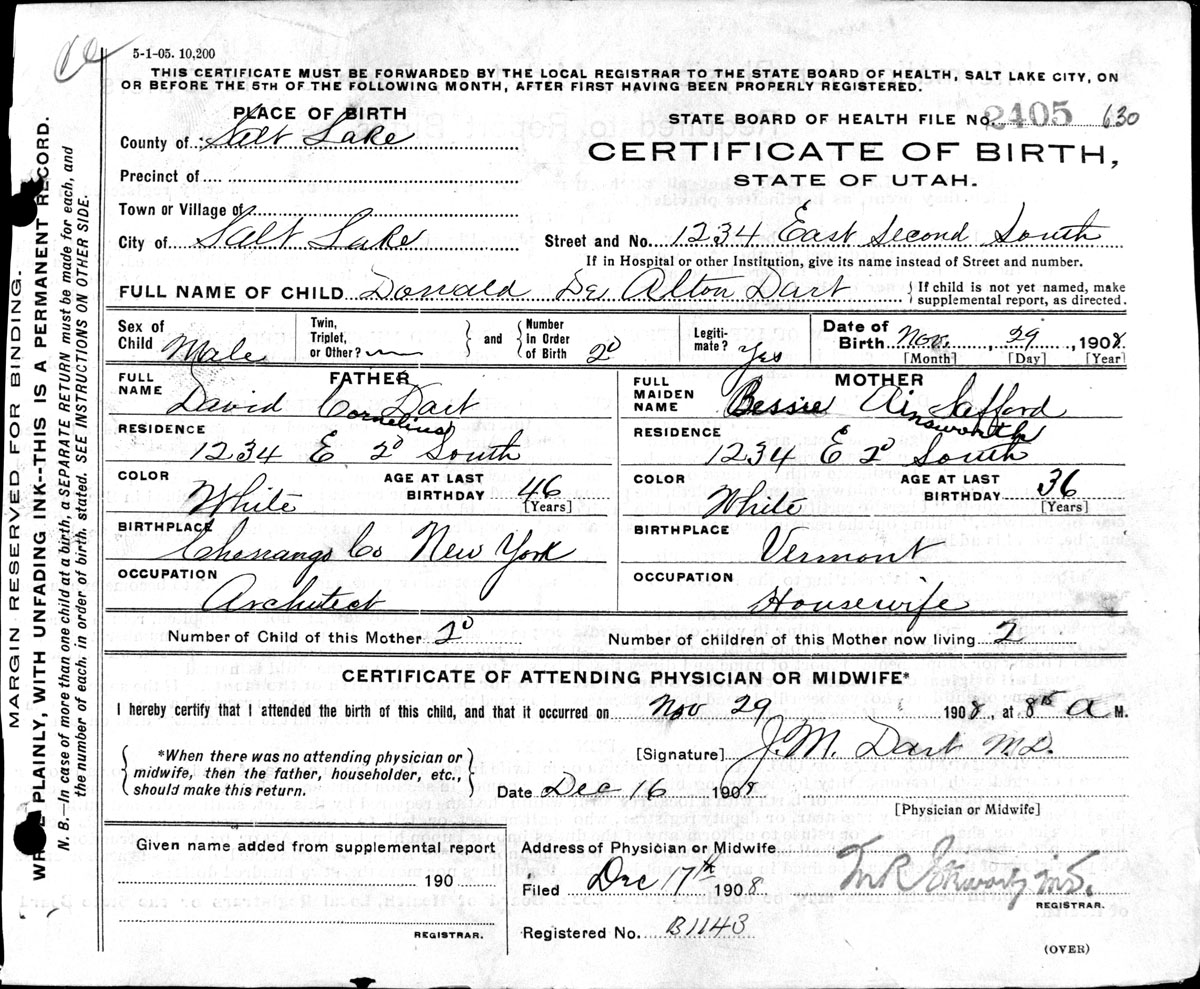 5-1-05. 10,200
THIS CERTIFICATE MUST BE FORWARDED BY THE LOCAL REGISTRAR TO THE STATE BOARD OF HEALTH, SALT LAKE CITY, ON
OR BEFORE THE 5TH OF THE FOLLOWING MONTH, AFTER FIRST HAVING BEEN PROPERLY REGISTERED.
PLACE OF BIRTH
County of Salt Lake
Precinct of
Town or Village of
City of Salt Lake
STATE BOARD OF HEALTH FILE No. 2405 630
CERTIFICATE OF BIRTH,
STATE OF UTAH.
Street and No. 1234 East Second South
If in Hospital or other Institution, give its name instead of Street and number.
FULL NAME OF CHILD Donald De Alton Dart { If child is not yet named, make
supplemental report, as directed.
Sex of Child Male
Twin, Triplet, or Other? — } and { Number in Order of Birth 2d
Legiti-mate? Yes
Date of Birth Nov. 29, 1908
[Month] [Day] [Year]
FATHER
FULL NAME David Cornelius Dart
RESIDENCE 1234 E 2d South
COLOR White AGE AT LAST BIRTHDAY 46 [Years]
BIRTHPLACE Chenango Co New York
OCCUPATION Architect
MOTHER
FULL MAIDEN NAME Bessie Ainsworth Safford
RESIDENCE 1234 E 2d South
COLOR White AGE AT LAST BIRTHDAY 36 [Years]
BIRTHPLACE Vermont
OCCUPATION Housewife
Number of Child of this Mother 2d Number of children of this Mother now living 2
CERTIFICATE OF ATTENDING PHYSICIAN OR MIDWIFE*
I hereby certify that I attended the birth of this child, and that it occurred on Nov 29 1908, at 8 15 A M.
{ *When there was no attending physician or
midwife, then the father, householder, etc.,
should make this return. }
[Signature] J. M. Dart MD.
Date Dec 16 1908
[Physician or Midwife]
Given name added from supplemental report
190
REGISTRAR.
Address of Physician or Midwife
Filed Dec 17th 1908
REGISTRAR.
Registered No. B1143
(OVER)
MARGIN RESERVED FOR BINDING.
PLAINLY, WITH UNFADING INK--THIS IS A PERMANENT RECORD.
N. B.—In case of more than one child at a birth, a SEPARATE RETURN must be made for each, and
the number of each, in order of birth, stated. SEE INSTRUCTIONS ON OTHER SIDE.